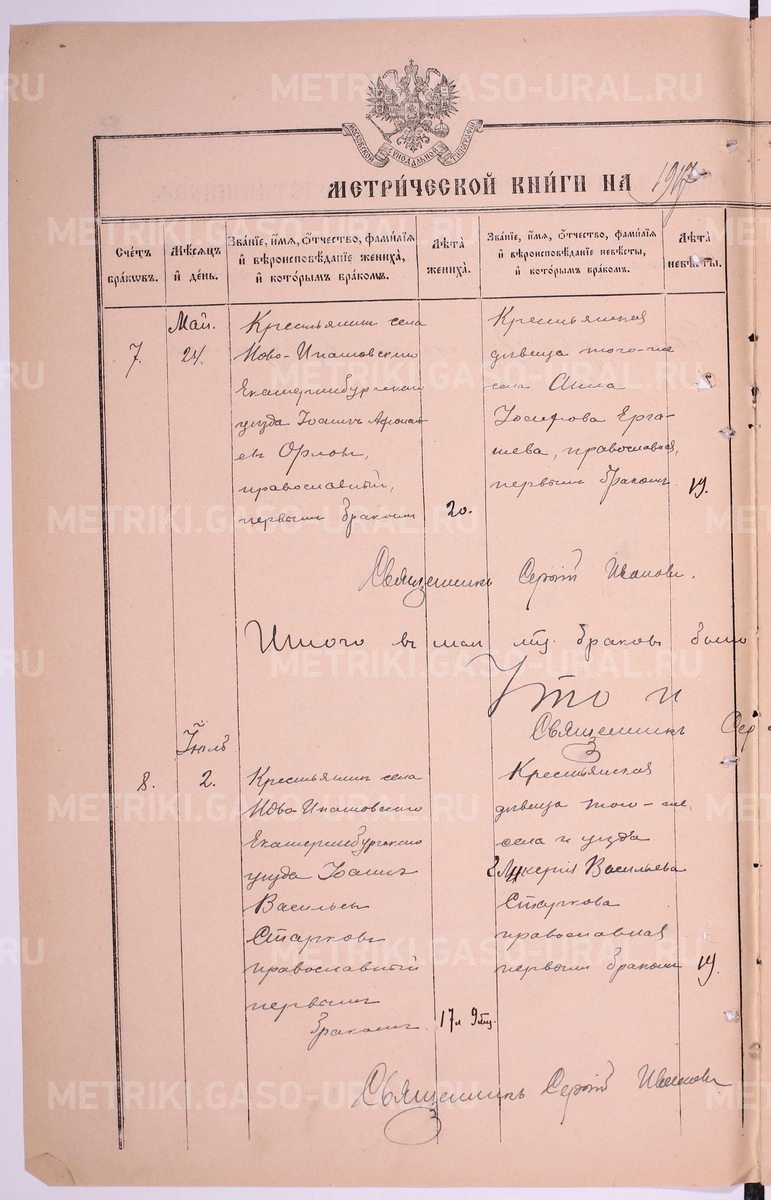 МОСКОВСКОЙ СѴНОДАЛЬНОЙ ТИПОГРАФІИ
МЕТРИ́ЧЕСКОЙ КНИ́ГИ НА 1917
Сче́тъ бра́кωвъ.
Мѣ́сяцъ и҆ де́нь.
Зва́нїе, и҆́мѧ, ѻ҆́тчество, фамѝлїѧ и҆ вѣроисповѣ́данїе жениха̀, и҆ кото́рымъ бра́комъ.
Лѣта̀ жениха̀.
Зва́нїе, и҆́мѧ, ѻ҆́тчество, фамѝлїѧ и҆ вѣроисповѣ́данїе невѣ́сты, и҆ кото́рымъ бра́комъ.
Лѣта̀ невѣ́сты.
7.
Май.
24.
Крестьянинъ села
Ново-Ипатовскаго
Екатеринбургскаго
уѣзда Іоаннъ
Орловъ,
православный,
первымъ бракомъ
20.
Крестьянская
дѣвица того-же
села Анна
Іосифова Ерга-
шева, православная,
первымъ бракомъ
19.
Священникъ Сергій Ивановъ.
Итого въ маѣ мѣц. браковъ было
Что и
Священникъ Сер
8.
Іюль
2.
Крестьянинъ села
Ново-Ипатовскаго
Екатеринбургскаго
уѣзда Іоаннъ
Васильевъ
Старковъ
православный
первымъ
бракомъ.
17 л 9 мц.
Крестьянская
дѣвица того-же
села и уѣзда
Гликерія Васильева
Старкова
православная
первымъ бракомъ
19.
Священникъ Сергій Ивановъ
METRIKI.GASO-URAL.RU